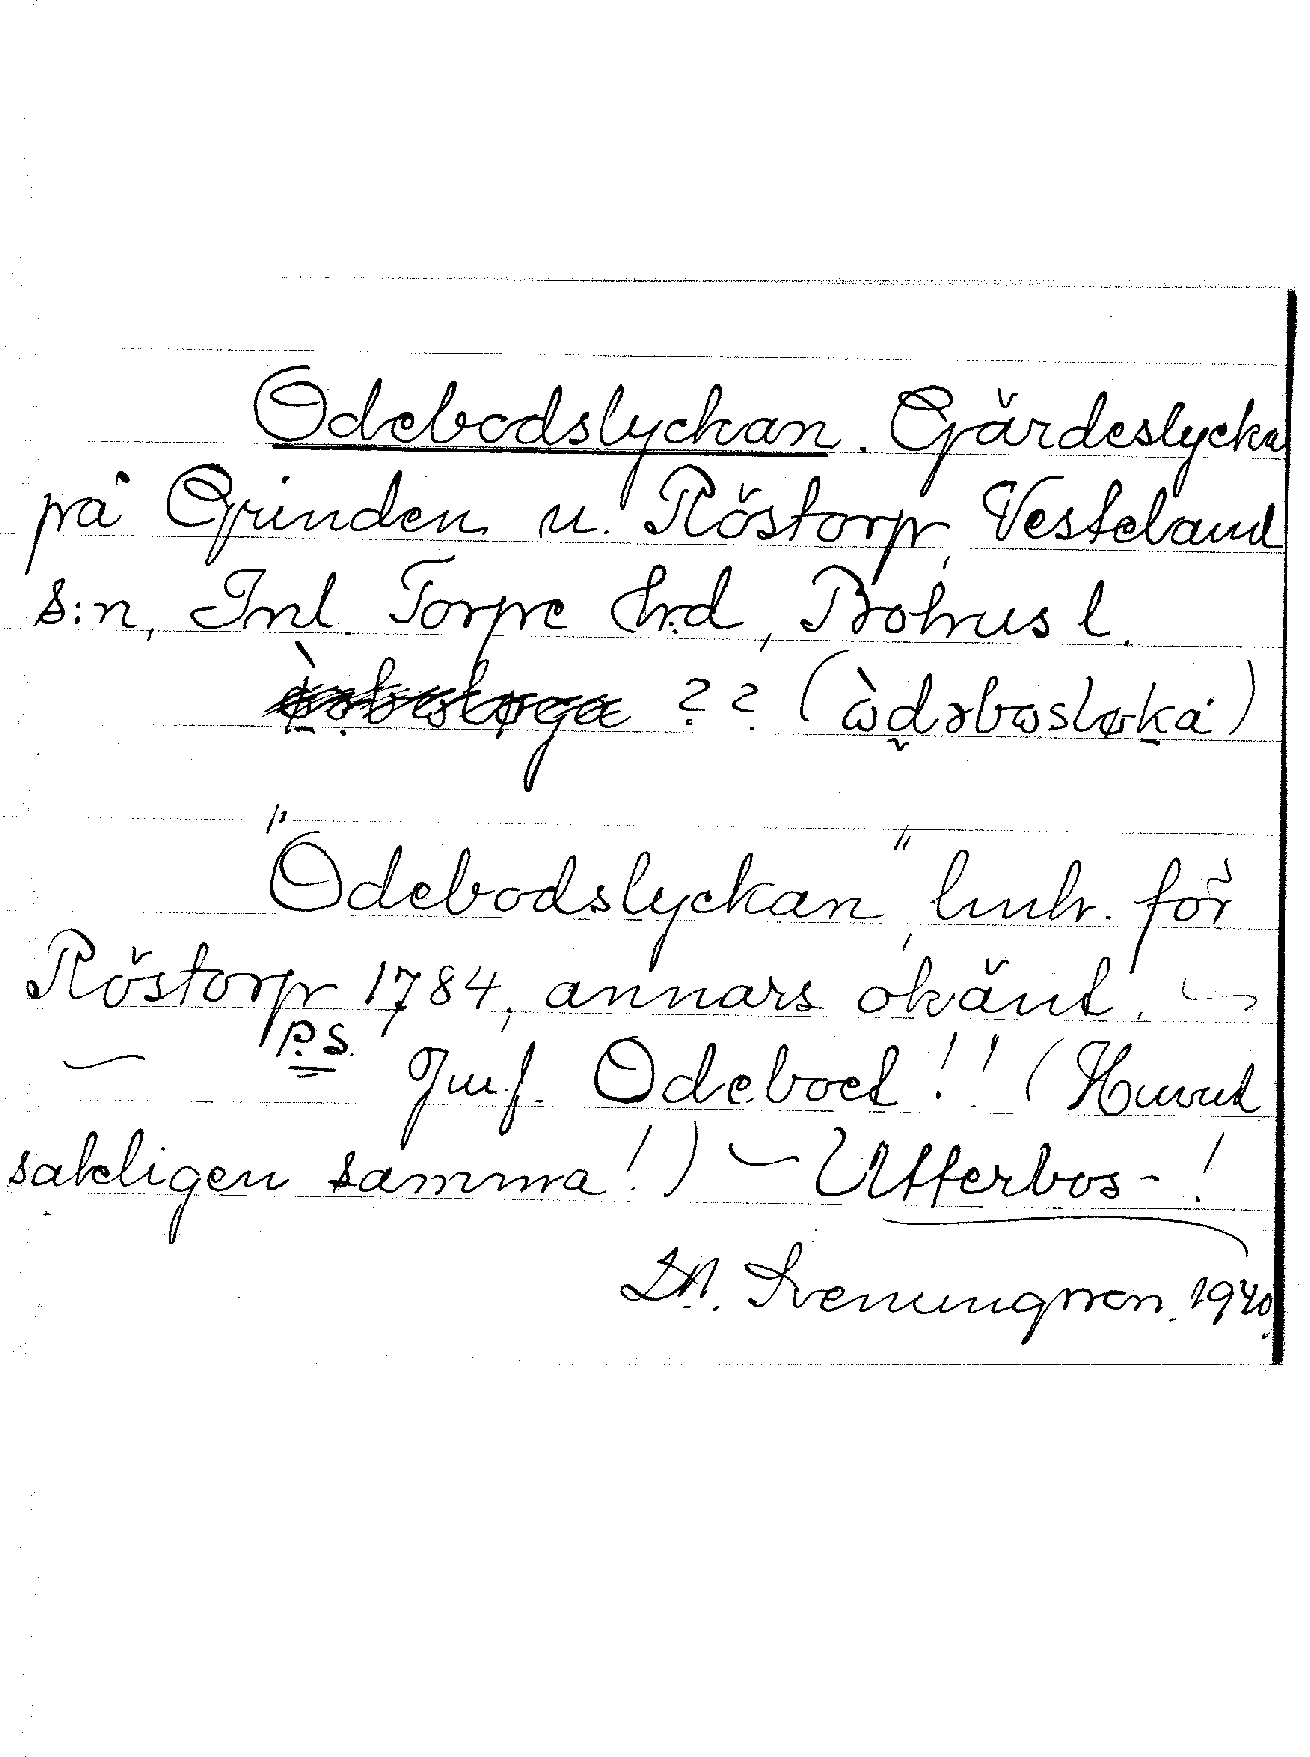 Odebodslyckan. Gärdeslycka
på Grinden u. Röstorp, Vesteland
s:n, Inl. Torpe hrd, Bohus l.
?? (ὼd̬ɘbɷsløka)
"Odebodslyckan", lmh. för
Röstorp 1784, annars okänt. ~
~ P.S. Jmf. Odeboet!! (Huvud
sakligen samma!) ~ Utterbos-!
D.A. Svenungsson. 1940.